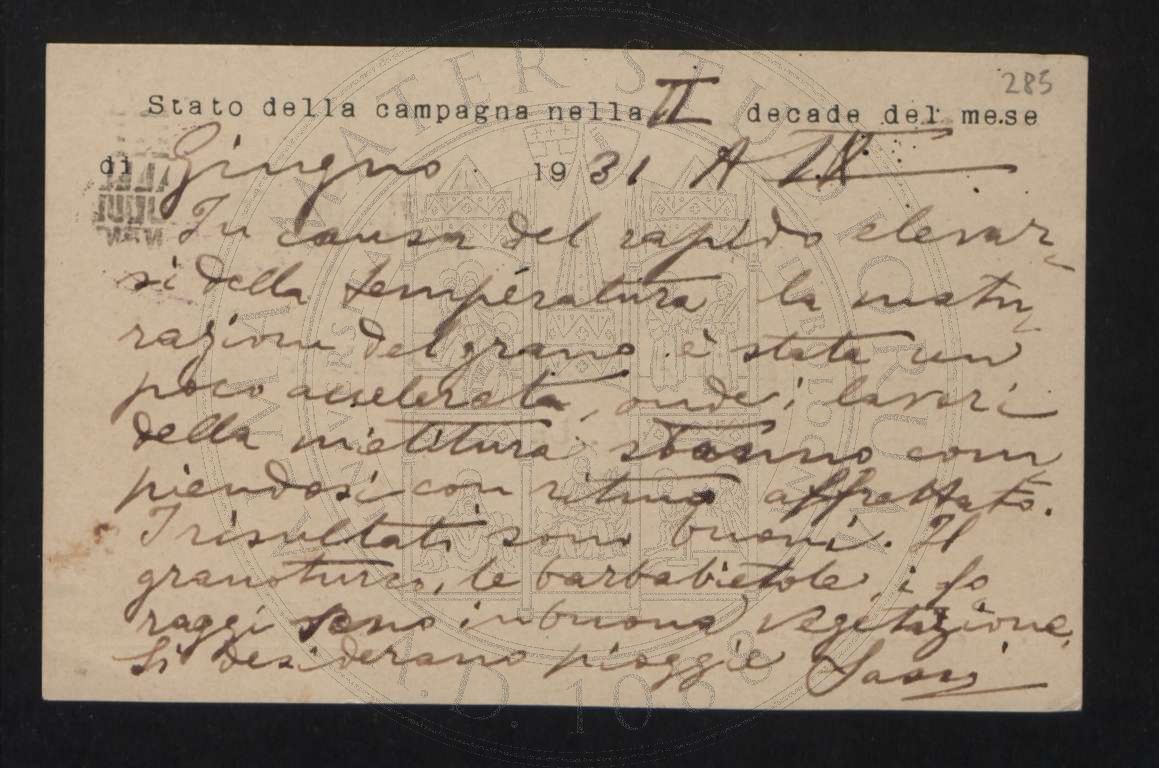 285
Stato della campagna nella II decade del mese
di Giugno 1931 A IX
In causa del rapido elevar-
si della temperatura la matu-
razione del grano è stata un
poco accelerata, onde i lavori
della mietitura stanno com
piendosi con ritmo affrettato.
I risultati sono buoni. Il
granoturco, le barbabietole, i fo
raggi sono in buona vegetazione.
Si desiderano pioggie Sassi
ALMA MATER STUDIORUM
A.D. 1088